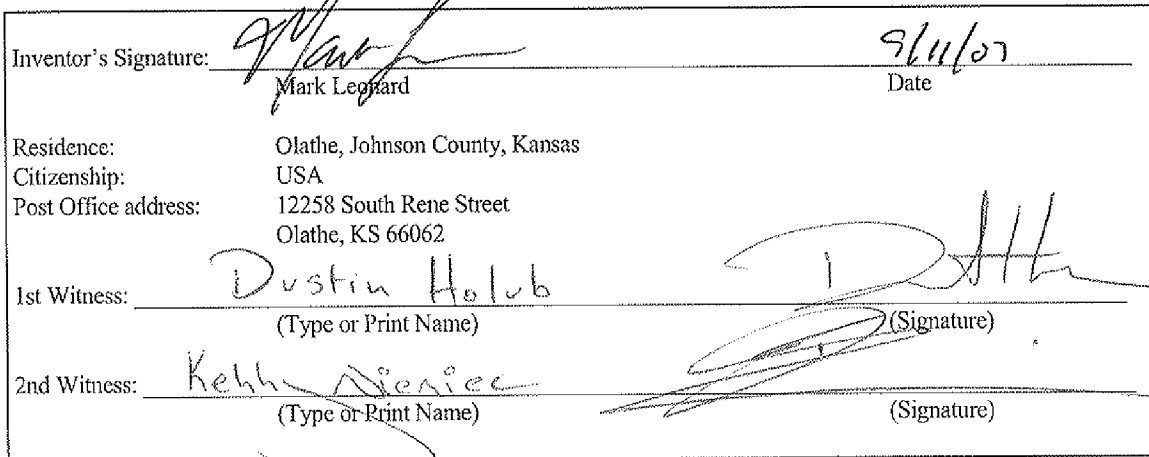 Inventor's Signature:
Mark Leonard Date
9/11/07
Residence: Olathe, Johnson County, Kansas
Citizenship: USA
Post Office address: 12258 South Rene Street
Olathe, KS 66062
1st Witness: Dustin Holub
(Type or Print Name) (Signature)
2nd Witness:
(Type or Print Name) (Signature)